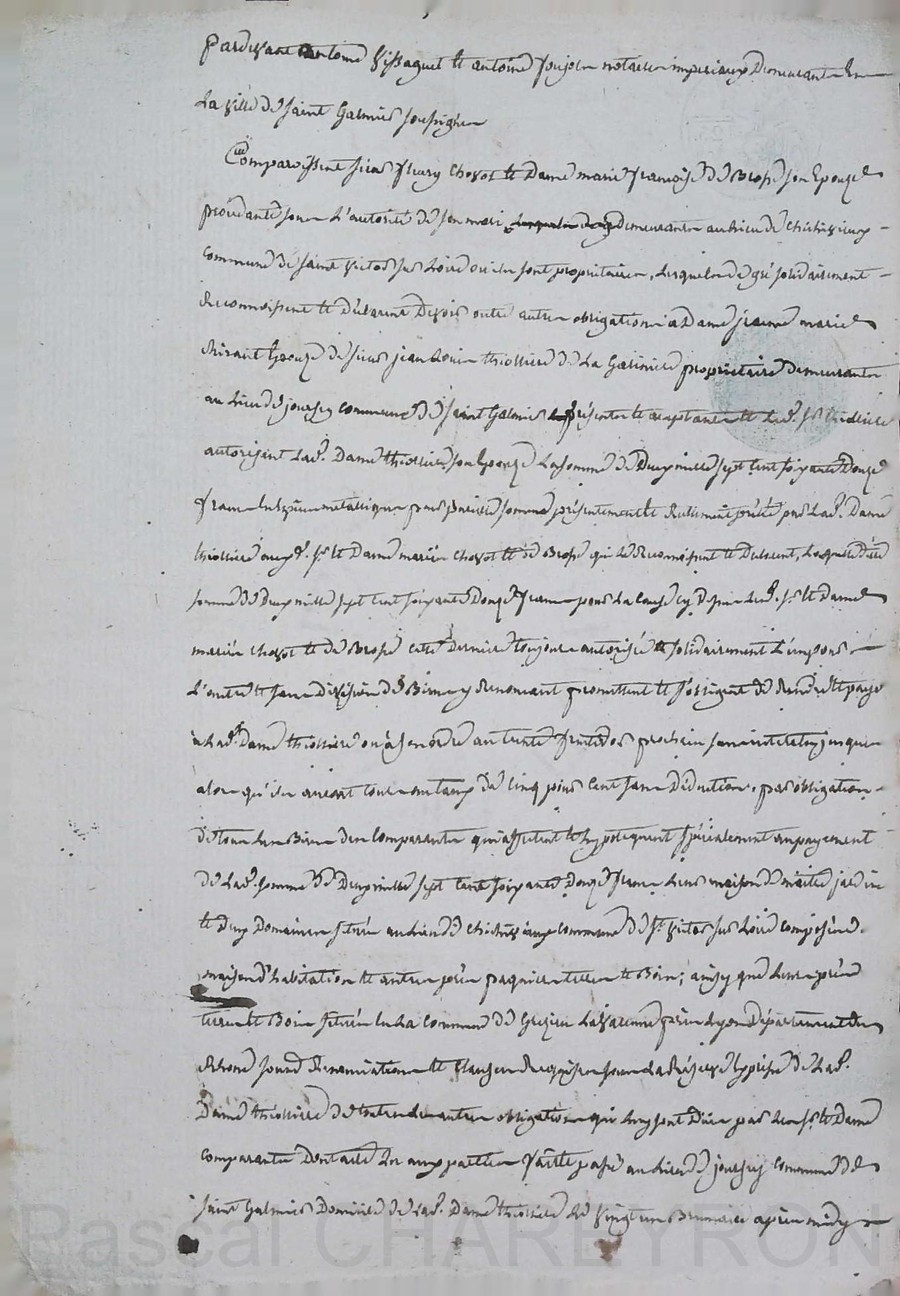 Pardevant antoine Vissaguet et antoine foujols notaires impériaux Demeurants En
La ville de saint Galmier soussignés
Comparoissent sieur fleury Chovot et Dame marie françoise de Brosse son Epouze
procédante sous L'autorité de son mari, demeurants au lieu de Chichivieux
commune de saint victor sur Loire où ils sont propriétaires, Lesquels de gré solidairement
Reconnoissent et déclarent Devoir outre autres obligations à Dame jeanne marie
Epouze de sieur jean Louis thiolliere de La propriétaire demeurante
au Lieu de joursey commune de saint Galmier présente et acceptante et Led. sr thiolliere
autorisant Lad. Dame thiolliere son Epouze La somme de Deux mille sept cent soixante Douze
francs En espèces métalliques pour pareille somme présentement et Réellement prêtée par Lad. Dame
thiolliere auxd. sr et Dame mariés Chovot et de Brosse qui Le Reconnoissent et Déclarent, Laquelle dite
somme de Deux mille sept cent soixante Douze francs pour La cause cy Dessus Led. sr et Dame
mariés chovot et de Brosse cette Dernière toujours autorisée et solidairement L'un pour
L'autre et sans Division de Biens y Renonçant promettent et s'obligent de Rendre et payer
à Lad. Dame thiolliere ou à son ordre au trente fructidor prochain sans intérêts jusques
alors qu'ils auront cours au taux de cinq pour cent sans Déduction, par obligation
de tous Les Biens des comparants qu'ils affectent et hypotequent spécialement au payement
de Lad. somme de Deux mille sept cent soixante Douze francs Leurs maison de maître jardin
et deux Domaines situés au Lieu de Chichivieux commune de St. victor sur Loire composés de
maison d'habitation et autres prés paquiers terres et Bois; ainsy que Leurs prés
terres et Bois situés En La commune de Grezieu La varenne près Lyon Département du
Rhone sous Renonciations et Clauses Requises sous La Réserve Expresse de Lad.
Dame thiolliere de toutes Les autres obligations qui Luy sont Dues par Les sr et Dame
comparants Dont acte Lu aux parties fait et passé au Lieu de joursey commune de
saint Galmier Domicile de Lad. Dame thiolliere Le vingt un Brumaire après midy
Pascal CHAREYRON